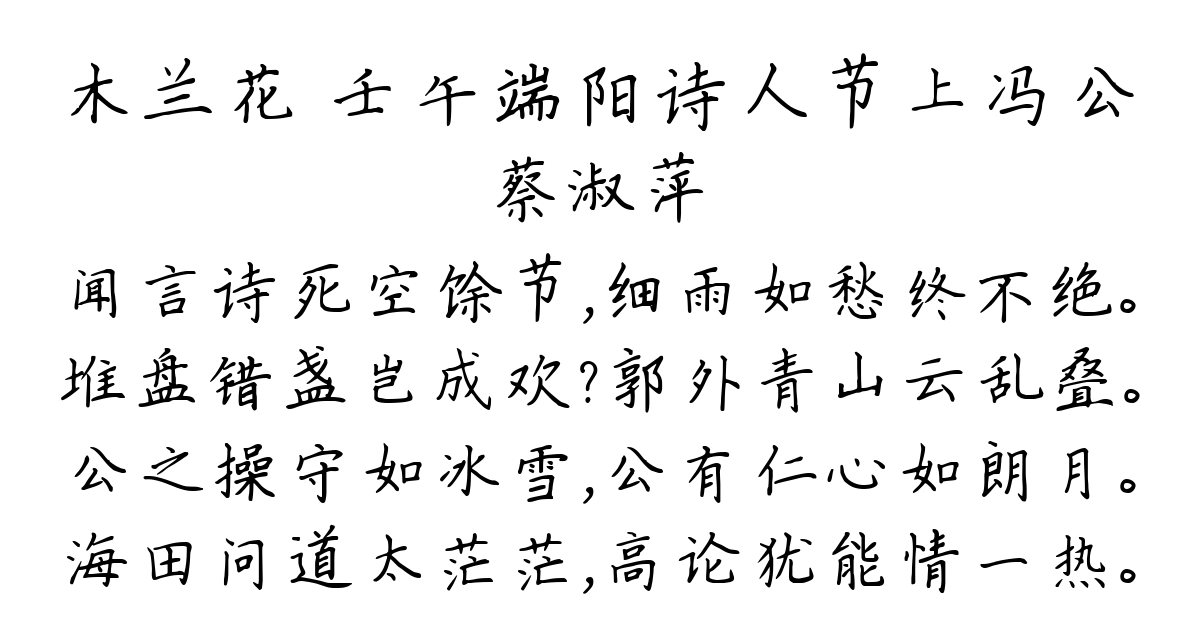 木兰花 壬午端阳诗人节上冯公
蔡淑萍
闻言诗死空馀节,细雨如愁终不绝。
堆盘错盏岂成欢?郭外青山云乱叠。
公之操守如冰雪,公有仁心如朗月。
海田问道太茫茫,高论犹能情一热。